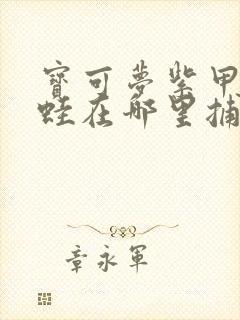 寶可夢紫甲
蛙在那里捕
章永軍